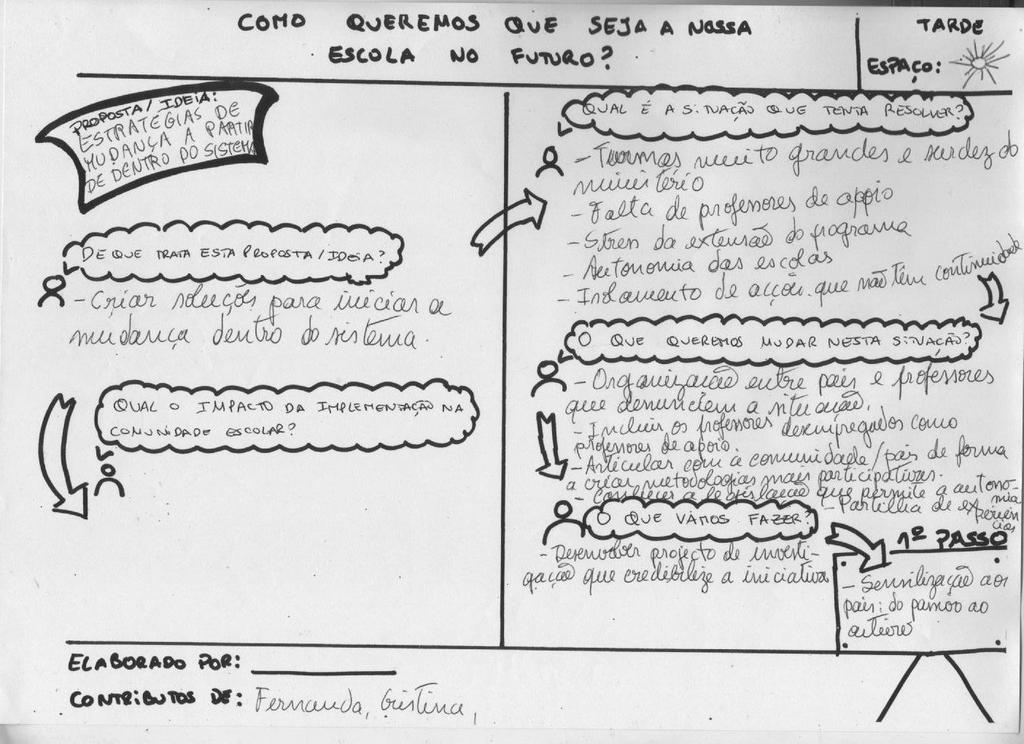 COMO QUEREMOS QUE SEJA A NOSSA
ESCOLA NO FUTURO?
TARDE
ESPAÇO:
PROPOSTA/IDEIA:
ESTRATÉGIAS DE
MUDANÇA A PARTIR
DE DENTRO DO SISTEMA
DE QUE TRATA ESTA PROPOSTA/IDEIA?
- Criar soluções para iniciar a
mudança dentro do sistema.
QUAL O IMPACTO DA IMPLEMENTAÇÃO NA
COMUNIDADE ESCOLAR?
QUAL É A SITUAÇÃO QUE TENTA RESOLVER?
- Turmas muito grandes e surdez do
ministério
- Falta de professores de apoio
- Stress da extensão do programa
- Autonomia das escolas
- Isolamento de acções que não têm continuidade
O QUE QUEREMOS MUDAR NESTA SITUAÇÃO?
- Organização entre pais e professores
que denunciem a situação.
- Incluir os professores desempregados como
professores de apoio.
- Articular com a comunidade/pais de forma
a criar metodologias mais participativas.
- Conhecer a legislação que permite a autonomia
- Partilha de experiências
O QUE VAMOS FAZER?
- Desenvolver projecto de investi-
gação que credibilize a iniciativa
1º PASSO
- Sensilização aos
pais: do pânico ao